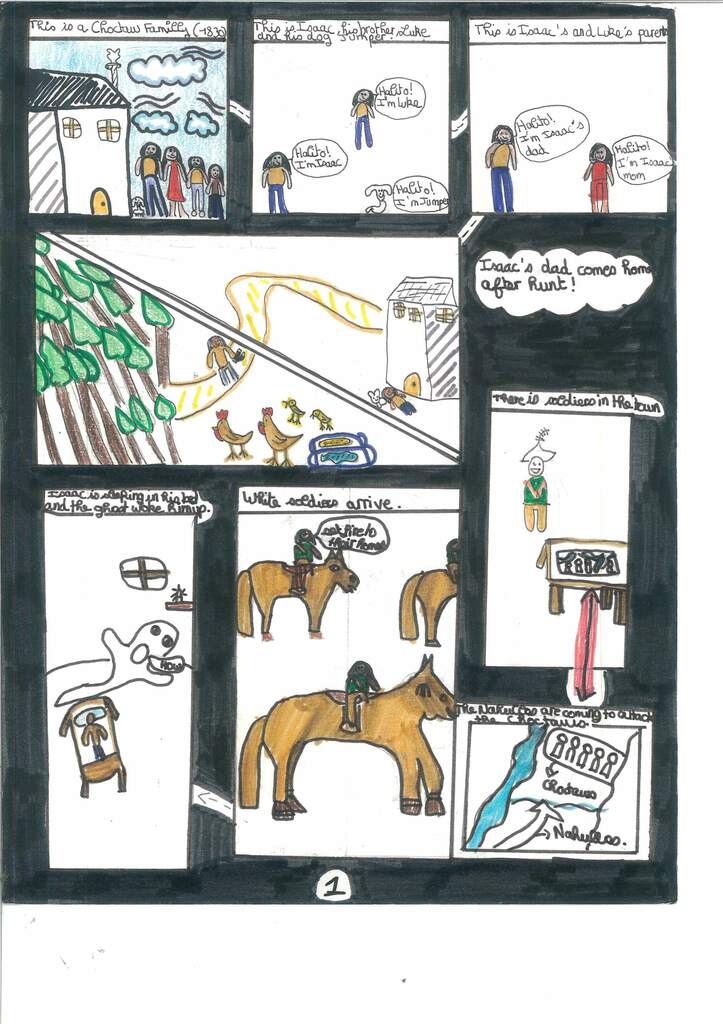 This is a Choctaw Family (-1830)
This is Isaac, his brother Luke
and his dog Jumper.
Halito!
I'm Luke
Halito!
I'm Isaac
Halito!
I'm Jumper
This is Isaac's and Luke's parents
Halito!
I'm Isaac's
dad
Halito!
I'm Isaac
mom
Isaac's dad comes home
after hunt!
There is soldiers in the town
Isaac is sleeping in his bed
and the ghost woke him up.
White soldiers arrive.
set fire to
their homes
The Nahullas are coming to attack
the Choctaws.
Choctaws
Nahullas.
1